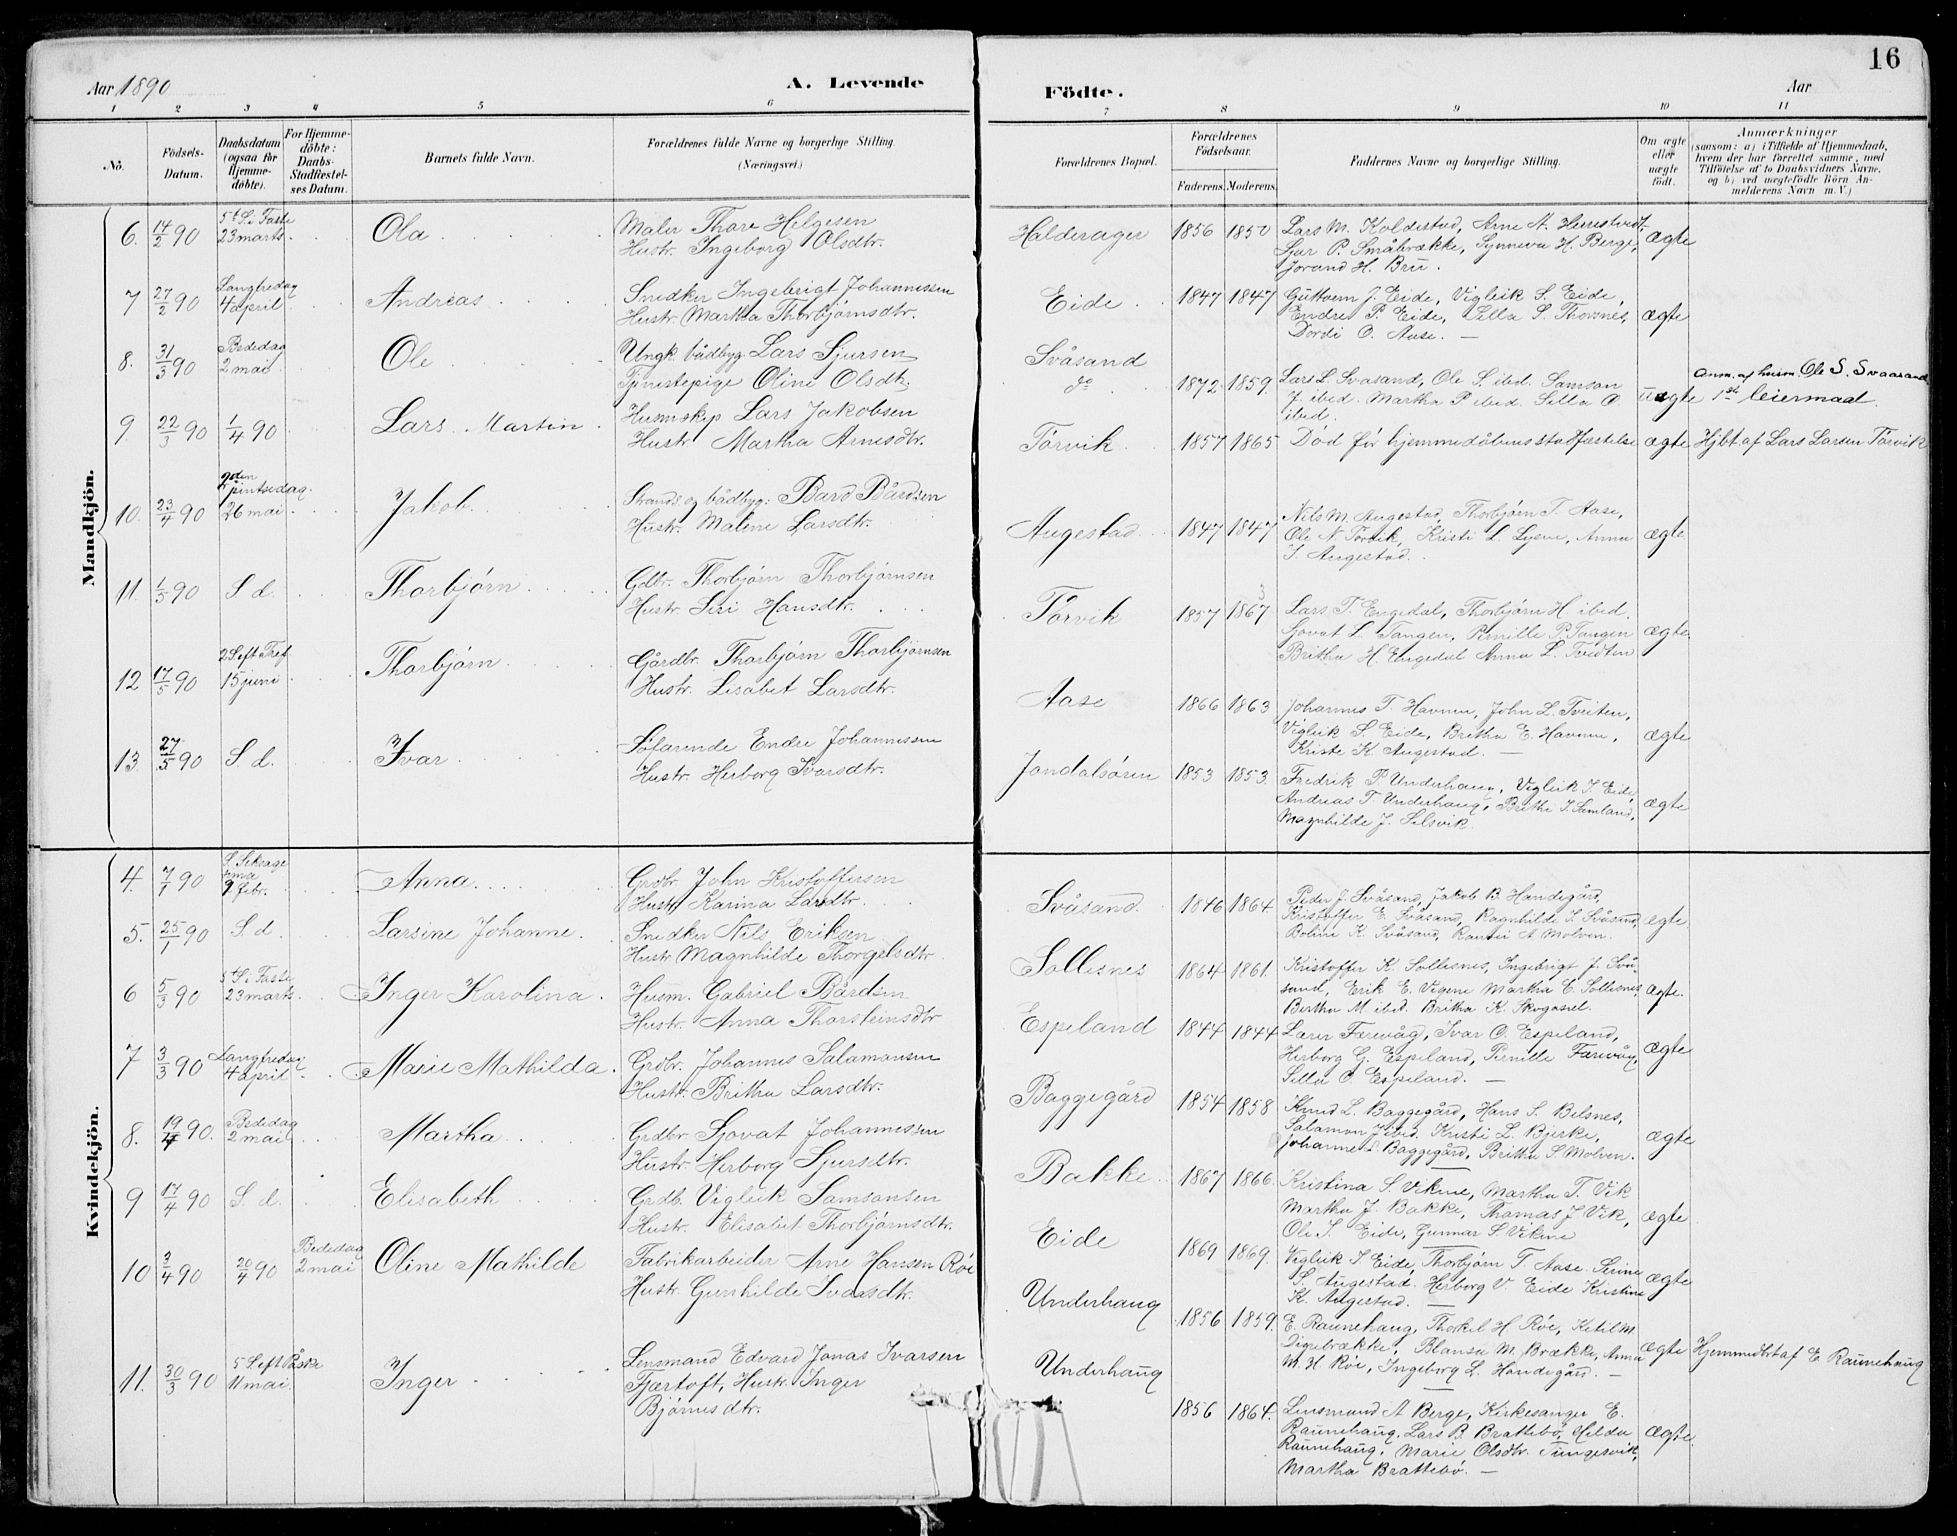 16
Aar 1890
A. Levende
Födte.
Aar
1 2 3 4 5 6 7 8 9 10 11
No.
Födsels-Datum.
Daabsdatum (ogsaa for Hjemmedöbte).
For Hjemmedöbte: Daabs-Stadfæstelses Datum.
Barnets fulde Navn.
Forældrenes fulde Navne og borgerlige Stilling. (Næringsvei.)
Forældrenes Bopæl.
Forældrenes Födselsaar.
Faderens. Moderens.
Faddernes Navne og borgerlige Stilling.
Om ægte eller uægte födt.
Anmærkninger (saasom: a) i Tilfælde af Hjemmedaab, hvem der har forrettet samme, med Tilföielse af to Daabsvidners Navne, og b) ved uægtefödte Börn Anmelderens Navn m. V.)
Mandkjön.
6. 14/2 90 5te S. i Faste 23 marts. Ola Maler Thore Helgesen
Hustr. Ingeborg Olsdtr. Halderager 1856 1850 Lars M. Koldestad, Arne A. Herrestvedt,
Sjur P. Småbrække, Synneva H. Berge, ægte
Jorand H. Bru.
7 27/2 90 Langfredag 4 april Andreas Snedker Ingebrigt Johannessen
Hustr. Martha Thorbjørnsdtr. Eide 1847 1847 Guttorm J. Eide, Vigleik S. Eide,
Endre P. Eide, Silla S. Thovnes, ægte
Dordi O. Aase. —
8. 31/3 90 Bededag 2 mai Ole Ungk. bådbyg. Lars Sjursen
Tjenestepige Oline Olsdtr. Svåsand
do 1872 1859. Lars L. Svåsand, Ole S. ibid. Samson
J. ibid. Martha P. ibid. Silla O. uægte
ibid. Anm. af husm. Ole S. Svaasand
1ste leiermaal.
9 22/3 90 1/4 90 Lars Martin Husmskip. Lars Jakobsen
Hustr Martha Arnesdtr. Torvik 1857 1865 Død før hjemmedåbens stadfæstelse ægte Hjbt. af Lars Larsen Torvik
10. 23/4 90 2den pintsedag. 26 mai Jakob Strands. og bådbyg: Bård Bårdsen
Hustr. Malene Larsdtr. Augestad 1847 1847 Nils M. Augestad, Thorbjørn T. Aase,
Ole N. Torvik, Kristi L. Lysen, Anna ægte.
I. Augestad.
11. 1/5 90 S. d. Thorbjørn Gdbr. Thorbjørn Thorbjørnsen
Hustr Siri Hansdtr. Torvik 1857 1867 Lars T. Engedal, Thorbjørn H. ibid.
Sjovat L. Tangen, Pernille P. Tangen ægte.
Britha H. Engedal Anna L. Tvidten
12 17/5 90 2 S. eft Tref 15 juni Thorbjørn Gårdbr. Thorbjørn Thorbjørnsen
Hustr. Lisabet Larsdtr. Aase 1866 1863 Johannes T. Havnen, John L. Tveiten,
Vigleik S. Eide, Britha E. Havnen, ægte
Kriste K. Augestad. —
13 27/5 90 S. d. Ivar Søfarende Endre Johannessen
Hustr. Herborg Ivarsdtr. Jondalsøren 1853 1853. Fredrik P. Underhaug, Vigleik J. Eide,
Andreas T. Underhaug, Brithe I. Samland, ægte
Magnhilde J. Selsvik.
Kvindekjön.
4. 7/1 90 S. Seksagesima 9 febr. Anna Grdbr. John Kristoffersen
Hustr. Karina Larsdtr. Svåsand 1846 1864. Peder J. Svåsand, Jakob B. Handegård,
Kristoffer E. Svåsand, Ragnhilde S. Svåsand, ægte
Boline K. Svåsand, Ranvei A Molven.
5. 25/1 90 S. d. Larsine Johanne Snedker Nils Eriksen
Hustr Magnhilde Thorgelsdtr. Sollesnes 1864 1861. Kristoffer K. Sollesnes, Ingebrigt J. Svåsand,
Erik E. Vigene Martha E. Sollesnes, ægte.
Bertha M ibid. Britha K. Skogasel.
6 5/3 90 5te S. i Faste 23 marts Inger Karolina. Husm. Gabriel Bårdsen
Hustr. Anna Thorsteinsdtr Espeland 1844 1844 Laren Farevåg, Ivar O. Espeland,
Herborg G. Espeland, Pernille Farevåg, ægte
Silla O. Espeland. —
7 3/3 90 Langfredag 4 april Marie Mathilda. Grdbr. Johannes Salamonsen
Hustr. Britha Larsdtr. Baggegård 1854 1858 Knud L. Baggegård, Hans S. Belsnes,
Salamon J. ibid. Kristi L. Bjerke, ægte
Johanne S. Baggegård, Britha S. Molven.
8. 19/4 90. Bededag 2 mai Martha Grdbr Sjovat Johannessen
Hustr. Herborg Sjursdtr. Bakke 1867 1866. Kristina S. Vikene, Martha T. Vik
Martha J. Bakke, Thomas J Vik, ægte
Ole S. Eide, Gunnar S. Vikene
9 17/4 90 S. d. Elisabeth Grdb. Vigleik Samsonsen
Hustr. Elisabet Thorbjørnsdtr. Eide 1869 1869. Vigleik I Eide, Thorbjørn T. Aase. Serine
S. Augestad. Herborg V. Eide Kristine ægte
K. Augestad. —
10 3/4 90 20/4 90 Bededag 2 mai Oline Mathilde Fabrikarbeider Arne Hansen Røe
Hustr. Gunhilde Ivarsdtr. Underhaug 1856 1859. E. Raunehaug, Thorkel H Røe, Ketil M.
Digebrække, Blansa M. Brække, Anna ægte Hjemmedøbt af E. Raunehaug
M. H. Røe, Ingeborg L. Handegård. —
11. 30/3 90 5 S. eft Påske 11 mai Inger Lensmand Edvard Jonas Ivarsen
Fjærtoft, Hustr. Inger
Bjørnesdtr. Underhaug 1856 1864. Lensmand A Berge, Kirkesanger E.
Raunehaug, Lars B. Brattebø, Hilda ægte
Raunehaug, Marie Olsdtr. Tungesvik,
Martha Brattebø. —